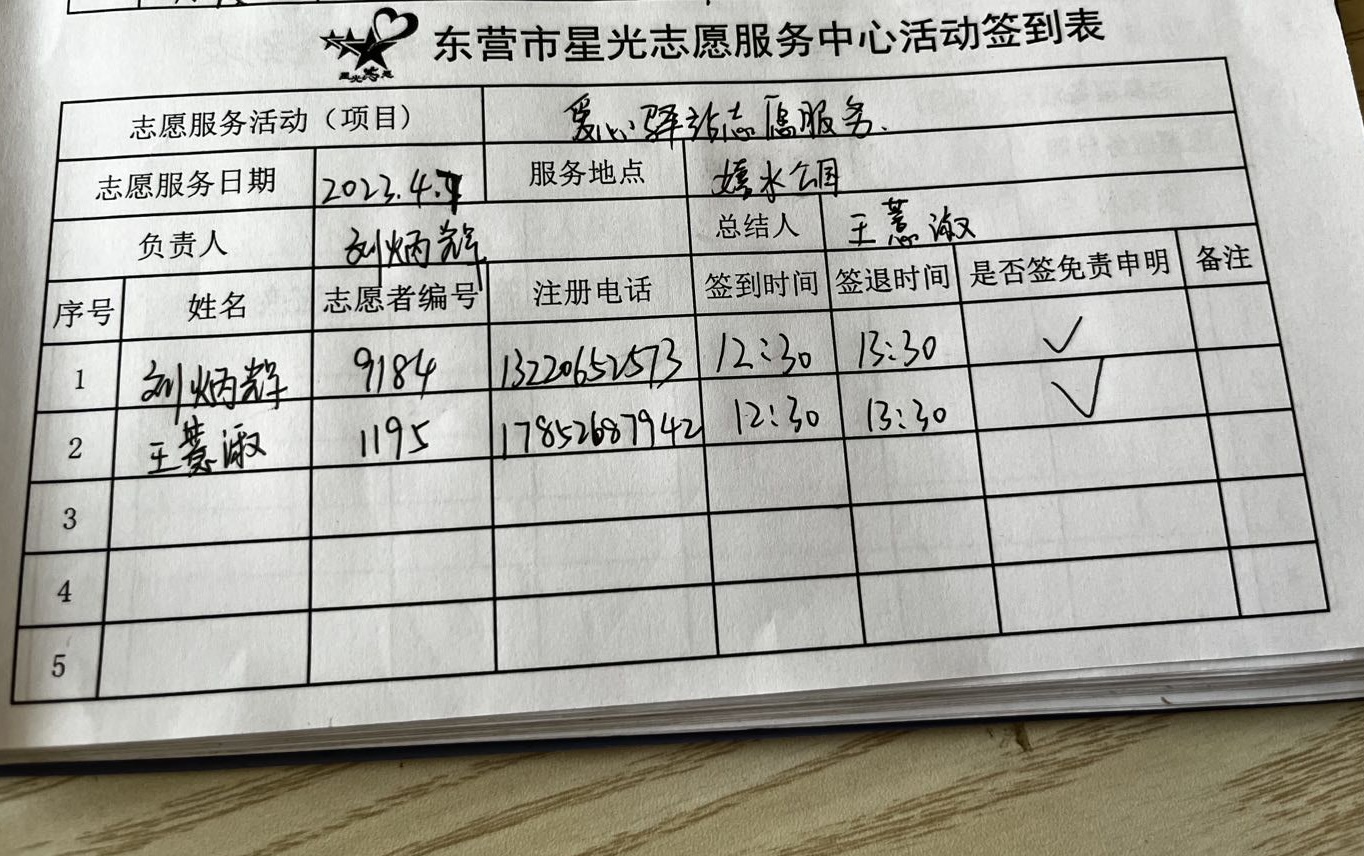 东营市星光志愿服务中心活动签到表
志愿服务活动（项目） 爱心驿站志愿服务.
志愿服务日期 2023.4. 服务地点 嬉水公园
负责人 刘炳辉 总结人 王慧淑
序号 姓名 志愿者编号 注册电话 签到时间 签退时间 是否签免责申明 备注
1 刘炳辉 9184 13220652573 12:30 13:30 ✓
2 王慧淑 1195 17852687942 12:30 13:30 ✓
3
4
5